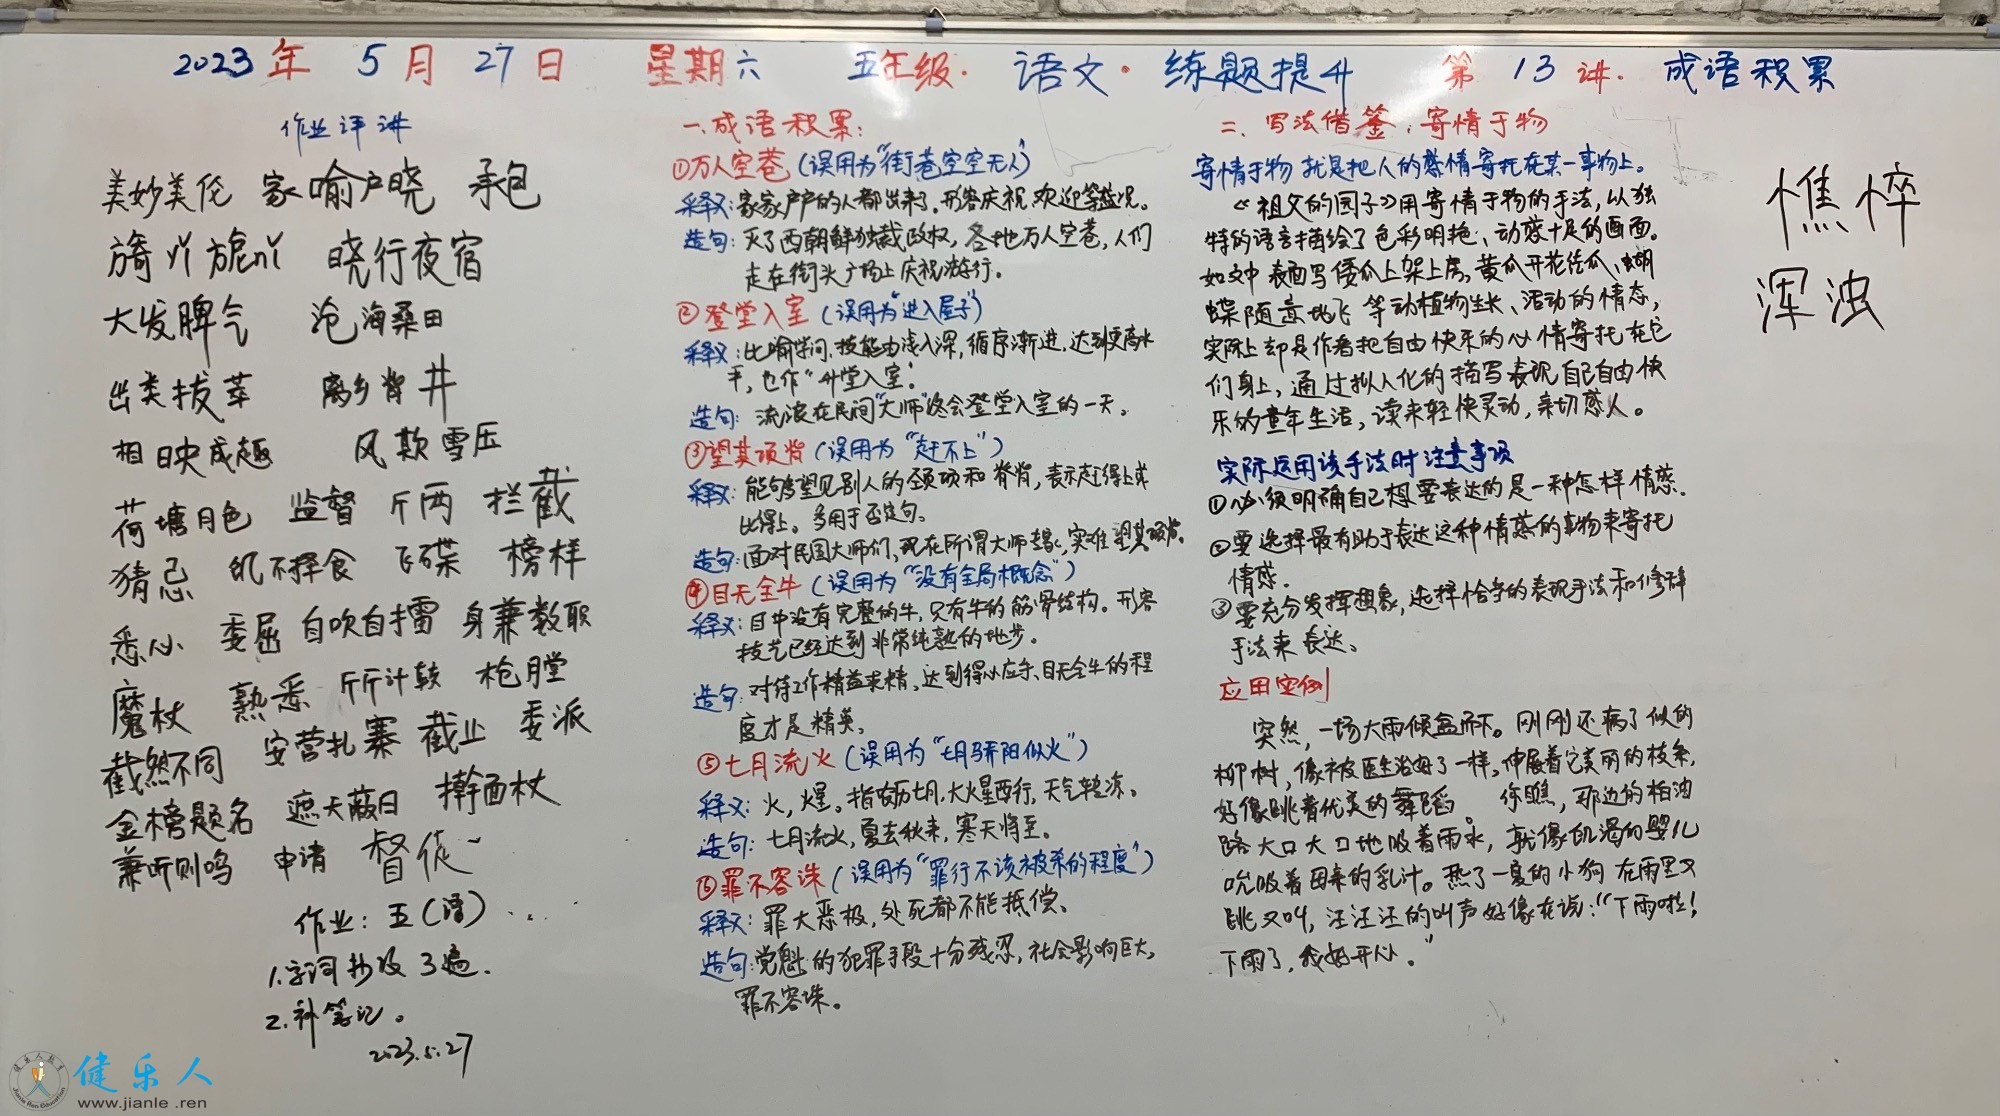 2023年 5月 27日 星期六 五年级·语文·练题提升 第13讲·成语积累
作业评讲
美妙美伦 家喻户晓 承包
旖旎 晓行夜宿
大发脾气 沧海桑田
出类拔萃 离乡背井
相映成趣 风欺雪压
荷塘月色 监督 斤两 拦截
猜忌 饥不择食 飞碟 榜样
悉心 委屈 自吹自擂 身兼数职
魔杖 熟悉 斤斤计较 枪膛
截然不同 安营扎寨 截止 委派
金榜题名 遮天蔽日 擀面杖
兼听则鸣 申请 督促
作业：五(语)...
1.字词抄及3遍.
2.补笔记。
2023.5.27
一.成语积累：
①万人空巷(误用为“街巷空空无人”)
释义：家家户户的人都出来了.形容庆祝.欢迎等盛况。
造句：灭了西朝鲜独裁政权，各地万人空巷，人们
走在街头广场上庆祝游行。
②登堂入室(误用为“进入屋子”)
释义：比喻学问.技能由浅入深，循序渐进.达到更高水
平，也作“升堂入室”.
造句：流浪在民间“大师”终会登堂入室的一天。
③望其项背(误用为“赶不上”)
释义：能够望见别人的颈项和脊背，表示赶得上或
比得上。多用于否定句。
造句：面对民国大师们、现在所谓大师专家，实难望其项背。
④目无全牛(误用为“没有全局概念”)
释义：目中没有完整的牛，只有牛的筋骨结构。形容
技艺已经达到非常纯熟的地步。
造句：对待工作精益求精、达到得心应手、目无全牛的程
度才是精英。
⑤七月流火(误用为“七月骄阳似火”)
释义：火，火星。指农历七月，大火星西行，天气转凉。
造句：七月流火，夏去秋来，寒天将至。
⑥罪不容诛(误用为“罪行不该被杀的程度”)
释义：罪大恶极，处死都不能抵偿、
造句：党魁的犯罪手段十分残忍，社会影响巨大，
罪不容诛。
二、写法借鉴：寄情于物
寄情于物 就是把人的感情寄托在某一事物上。
《祖父的园子》用寄情于物的手法，以独
特的语言描绘了色彩明艳、动感十足的画面。
如文中表面写倭瓜上架上房，黄瓜开花结瓜、蝴
蝶随意地飞 等动植物生长、活动的情态，
实际上却是作者把自由快乐的心情寄托在它
们身上，通过拟人化的描写表现自己自由快
乐的童年生活，读来轻快灵动，亲切感人。
实际运用该手法时注意事项
①必须明确自己想要表达的是一种怎样情感.
②要选择最有助于表达这种情感的事物来寄托
情感.
③要充分发挥想象，选择恰当的表现手法和修辞
手法来表达、
应用实例
突然，一场大雨倾盆而下。刚刚还病了似的
柳树，像被医生治好了一样，伸展着它美丽的枝条，
好像跳着优美的舞蹈。你瞧，那边的柏油
路大口大口地吸着雨水，就像饥渴的婴儿
吮吸着母亲的乳汁。热了一夏的小狗在雨里又
跳又叫，汪汪汪的叫声好像在说：“下雨啦！
下雨了，我好开心。”
憔悴
浑浊
健乐人
www.jianle.ren